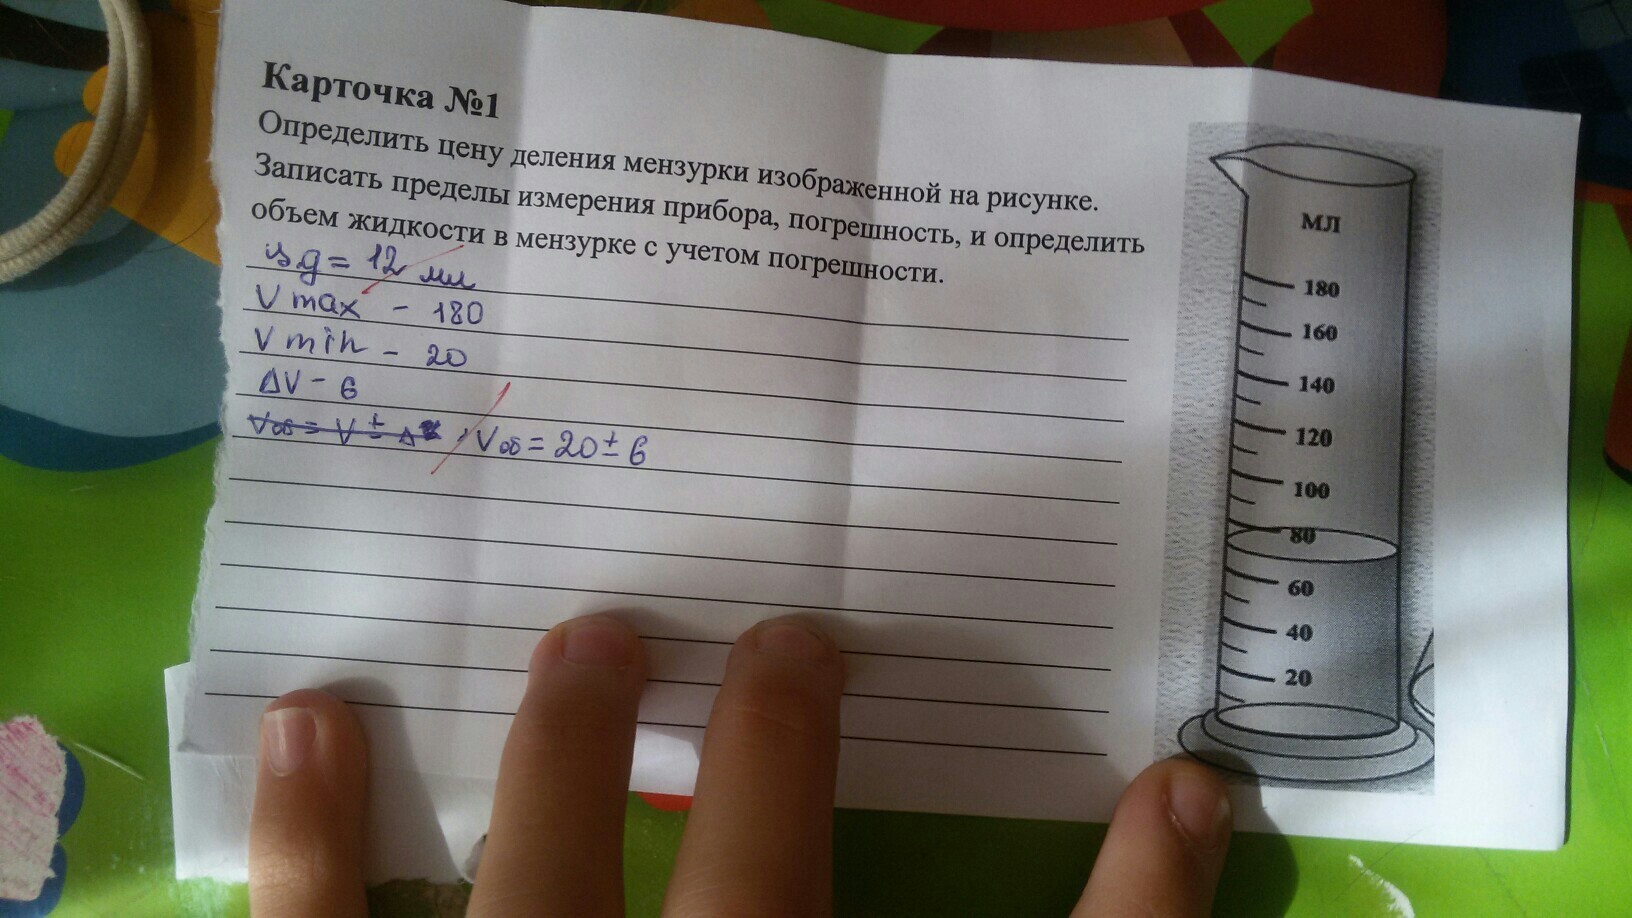 Карточка №1
Определить цену деления мензурки изображенной на рисунке.
Записать пределы измерения прибора, погрешность, и определить
объем жидкости в мензурке с учетом погрешности.
цд = 12 мл
V max - 180
V min - 20
ΔV - 6
Vоб = V ± Δ Vоб = 20 ± 6
МЛ
180
160
140
120
100
80
60
40
20